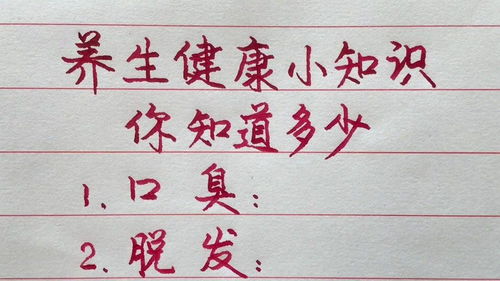 养生健康小知识
你知道多少
1.口臭：
2.脱发：